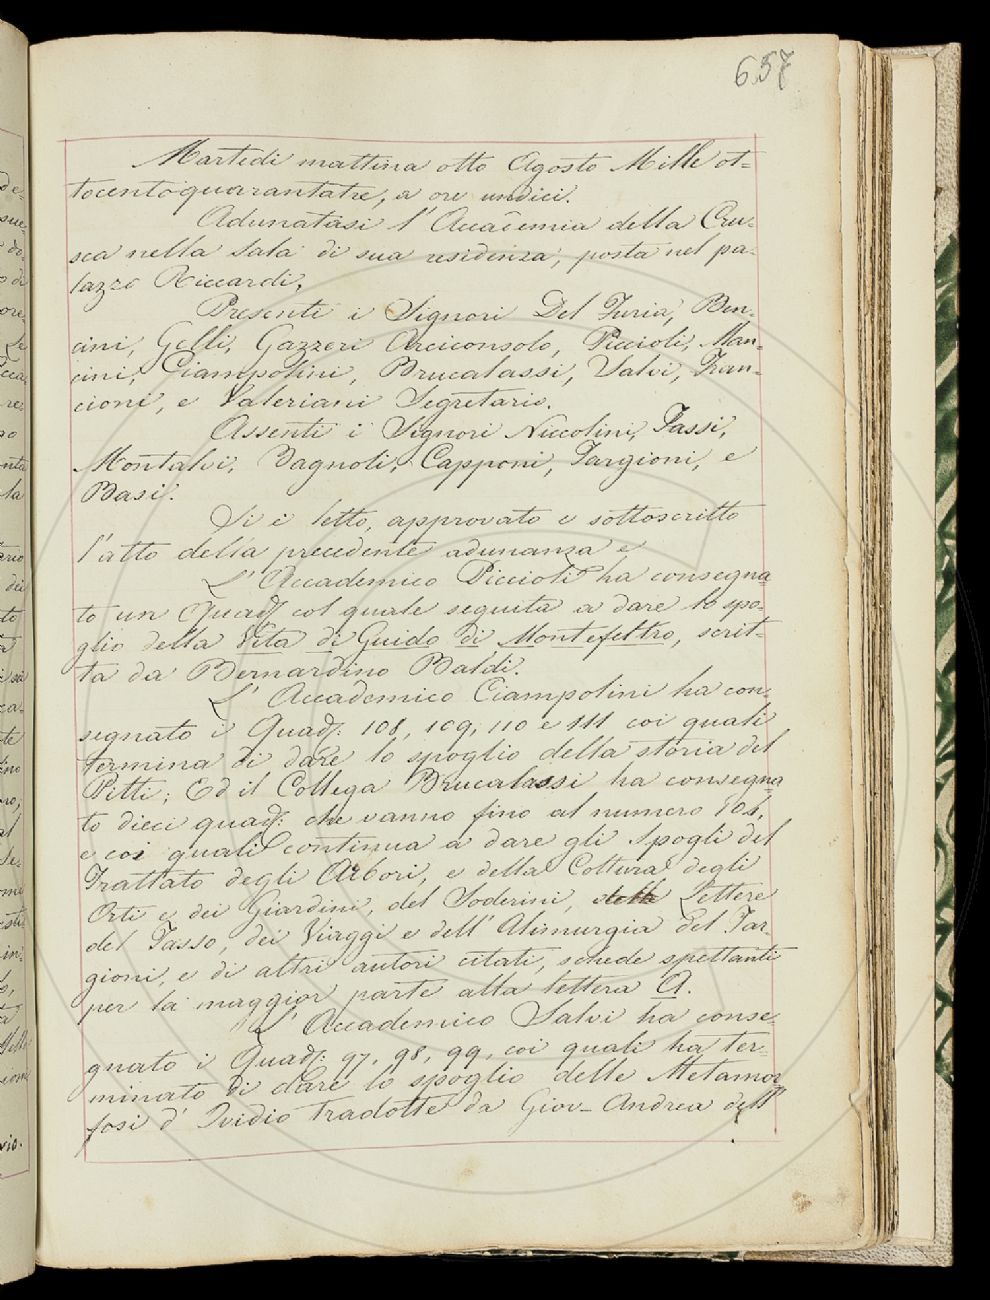 657
Martedì mattina otto Agosto Mille ot=
tocentoquarantatre, a ore undici.
Adunatasi l'Accademia della Cru-
sca nella Sala di sua residenza, posta nel pa-
lazzo Riccardi,
Presenti i Signori Del Furia, Ben-
cini, Gelli, Gazzeri Arciconsolo, Piccioli, Man-
cini, Ciampolini, Brucalassi, Salvi, Fran-
cioni, e Valeriani Segretario.
Assenti i Signori Niccolini, Tassi,
Montalvi, Bagnoli, Capponi, Targioni, e
Basi.
Si è letto, approvato e sottoscritto
l'atto della precedente adunanza e
L'Accademico Piccioli ha consegna=
to un Quad. col quale seguita a dare lo spo-
glio della Vita di Guido di Montefeltro, scrit-
ta da Bernardino Baldi.
L'Accademico Ciampolini ha con-
segnato i Quad. 108, 109, 110 e 111 coi quali
termina di dare lo spoglio della storia del
Pitti; Ed il Collega Brucalassi ha consegna=
to dieci quad. che vanno fino al numero 104,
e coi quali continua a dare gli Spogli del
Trattato degli Arbori, e della Coltura degli
Orti e dei Giardini, del Soderini, delle Lettere
del Tasso, dei Viaggi e dell'Alimurgia Del Tar-
gioni, e di altri autori citati, schede spettanti
per la maggior parte alla lettera A.
L'Accademico Salvi ha conse-
gnato i Quad. 97, 98, 99, coi quali ha ter-
minato di dare lo spoglio delle Metamor
fosi d'Ovidio tradotte da Giov- Andrea dell'